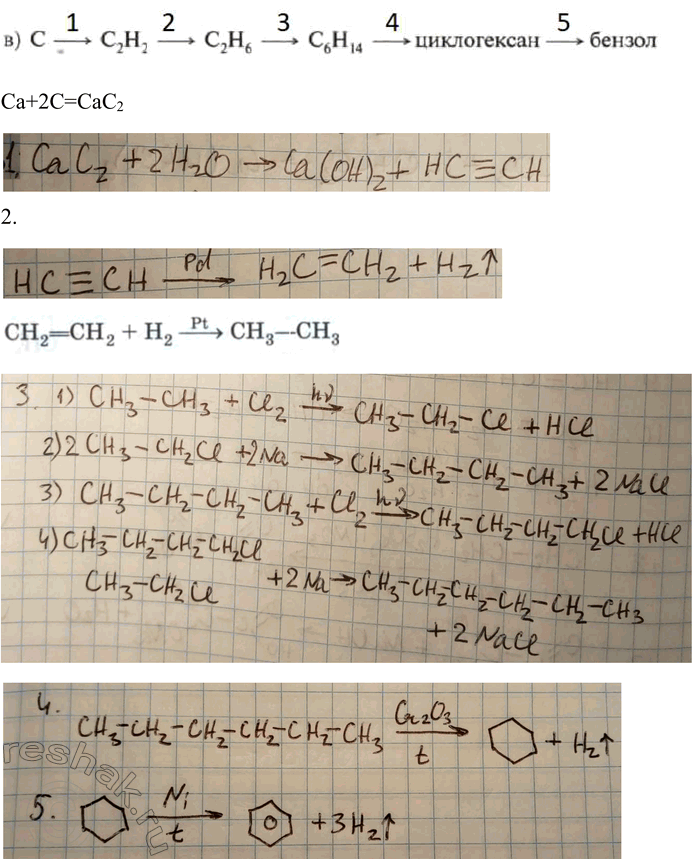 в) C 1→ C₂H₂ 2→ C₂H₆ 3→ C₆H₁₄ 4→ циклогексан 5→ бензол
Ca+2C=CaC₂
1. CaC₂ + 2H₂O → Ca(OH)₂ + HC≡CH
2.
HC≡CH Pd→ H₂C=CH₂ + H₂↑
CH₂=CH₂ + H₂ Pt→ CH₃–CH₃
3. 1) CH₃–CH₃ + Cl₂ hν→ CH₃–CH₂–Cl + HCl
2) 2CH₃–CH₂Cl +2Na → CH₃–CH₂–CH₂–CH₃ + 2NaCl
3) CH₃–CH₂–CH₂–CH₃ + Cl₂ hν→ CH₃–CH₂–CH₂–CH₂Cl + HCl
4) CH₃–CH₂–CH₂–CH₂Cl
CH₃–CH₂Cl +2Na → CH₃–CH₂–CH₂–CH₂–CH₂–CH₃
+ 2NaCl
4.
CH₃–CH₂–CH₂–CH₂–CH₂–CH₃ Cr₂O₃→ t + H₂↑
5. Ni→ t + 3H₂↑
reshak.ru